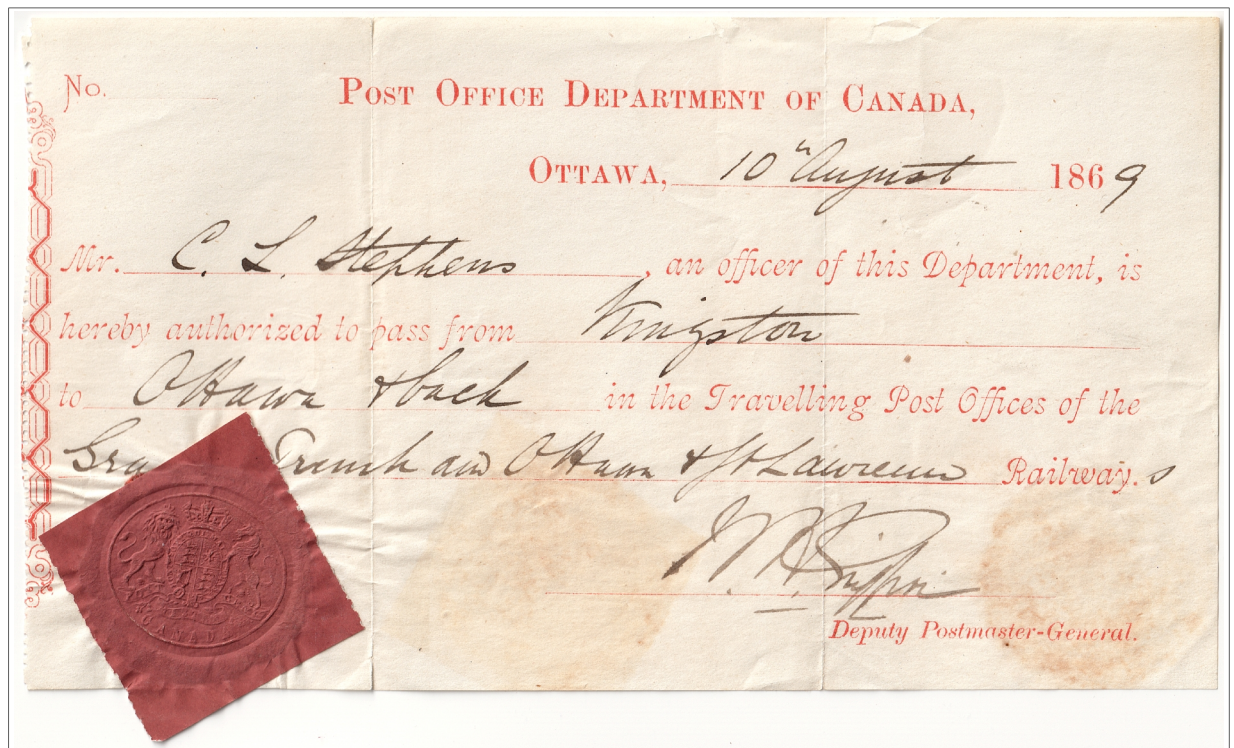 No.
POST OFFICE DEPARTMENT OF CANADA,
OTTAWA, 10th August 1869
Mr. C. L. Stephens, an officer of this Department, is
hereby authorized to pass from Kingston
to Ottawa & back in the Travelling Post Offices of the
Gra Trunk and Ottawa & St Lawrence Railway.s
W. H. Griffin
Deputy Postmaster-General.
CANADA